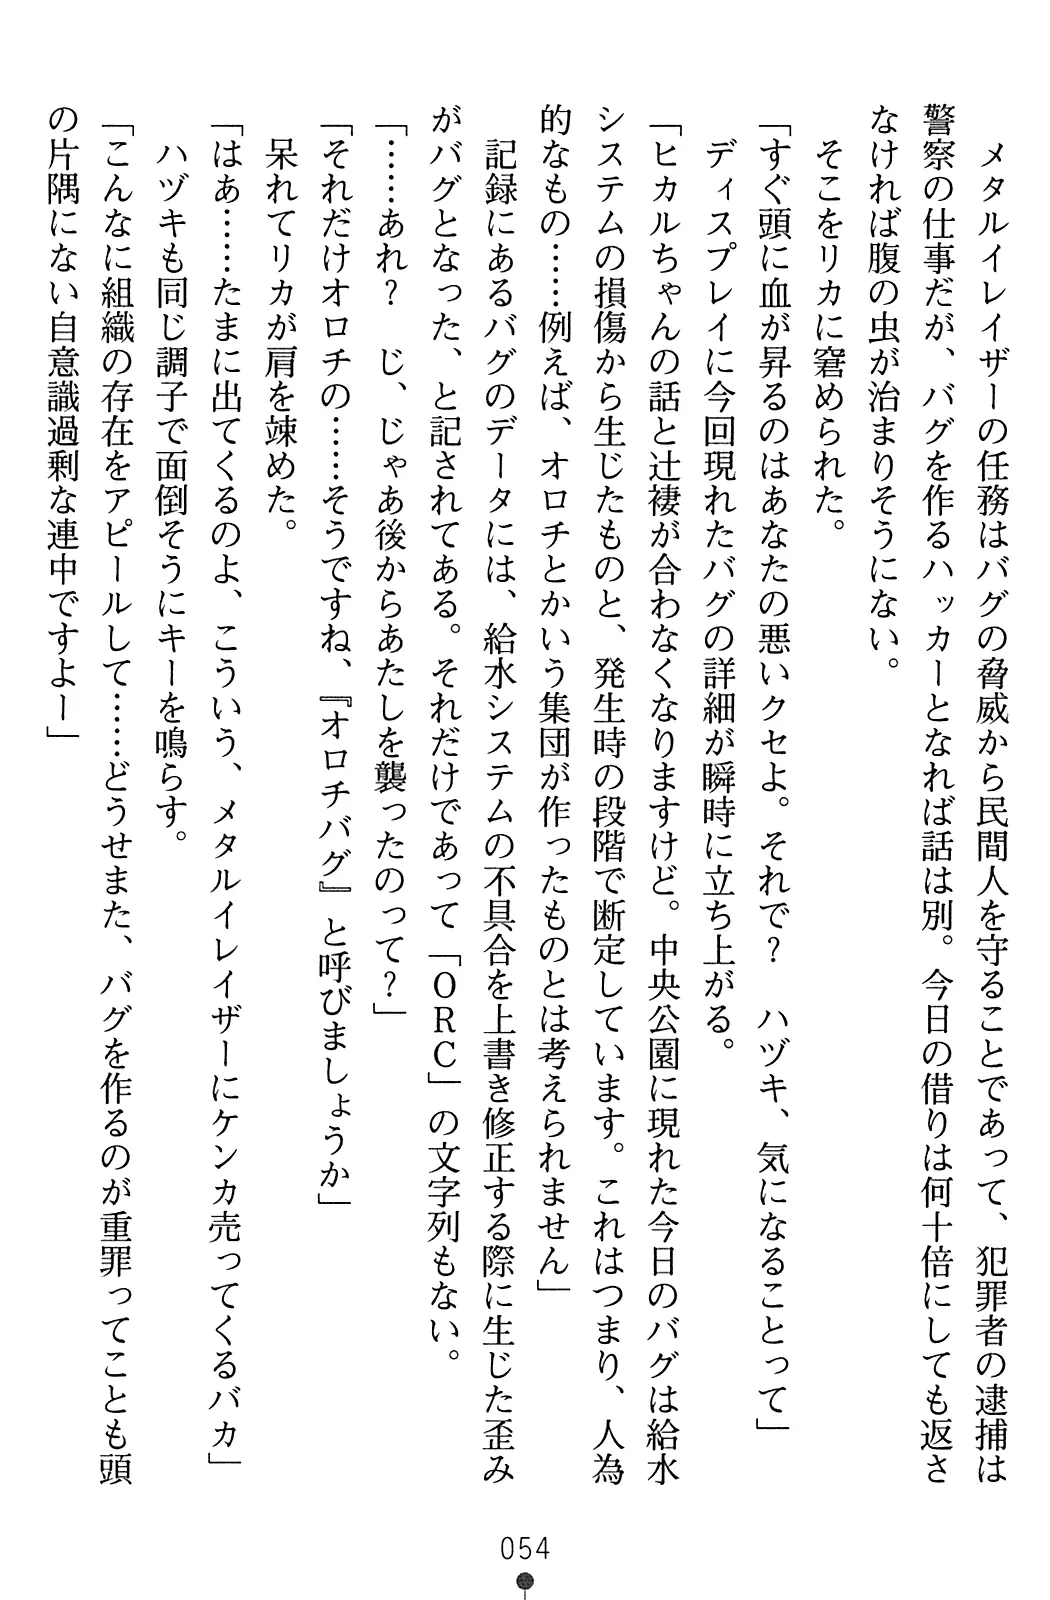 メタルイレイザーの任務はバグの脅威から民間人を守ることであって、犯罪者の逮捕は
警察の仕事だが、バグを作るハッカーとなれば話は別。今日の借りは何十倍にしても返さ
なければ腹の虫が治まりそうにない。
　そこをリカに窘められた。
「すぐ頭に血が昇るのはあなたの悪いクセよ。それで？　ハヅキ、気になることって」
　ディスプレイに今回現れたバグの詳細が瞬時に立ち上がる。
「ヒカルちゃんの話と辻褄が合わなくなりますけど。中央公園に現れた今日のバグは給水
システムの損傷から生じたものと、発生時の段階で断定しています。これはつまり、人為
的なもの……例えば、オロチとかいう集団が作ったものとは考えられません」
　記録にあるバグのデータには、給水システムの不具合を上書き修正する際に生じた歪み
がバグとなった、と記されてある。それだけであって「ＯＲＣ」の文字列もない。
「……あれ？　じ、じゃあ後からあたしを襲ったのって？」
「それだけオロチの……そうですね、『オロチバグ』と呼びましょうか」
　呆れてリカが肩を竦めた。
「はぁ……たまに出てくるのよ、こういう、メタルイレイザーにケンカ売ってくるバカ」
　ハヅキも同じ調子で面倒そうにキーを鳴らす。
「こんなに組織の存在をアピールして……どうせまた、バグを作るのが重罪ってことも頭
の片隅にない自意識過剰な連中ですよー」
054